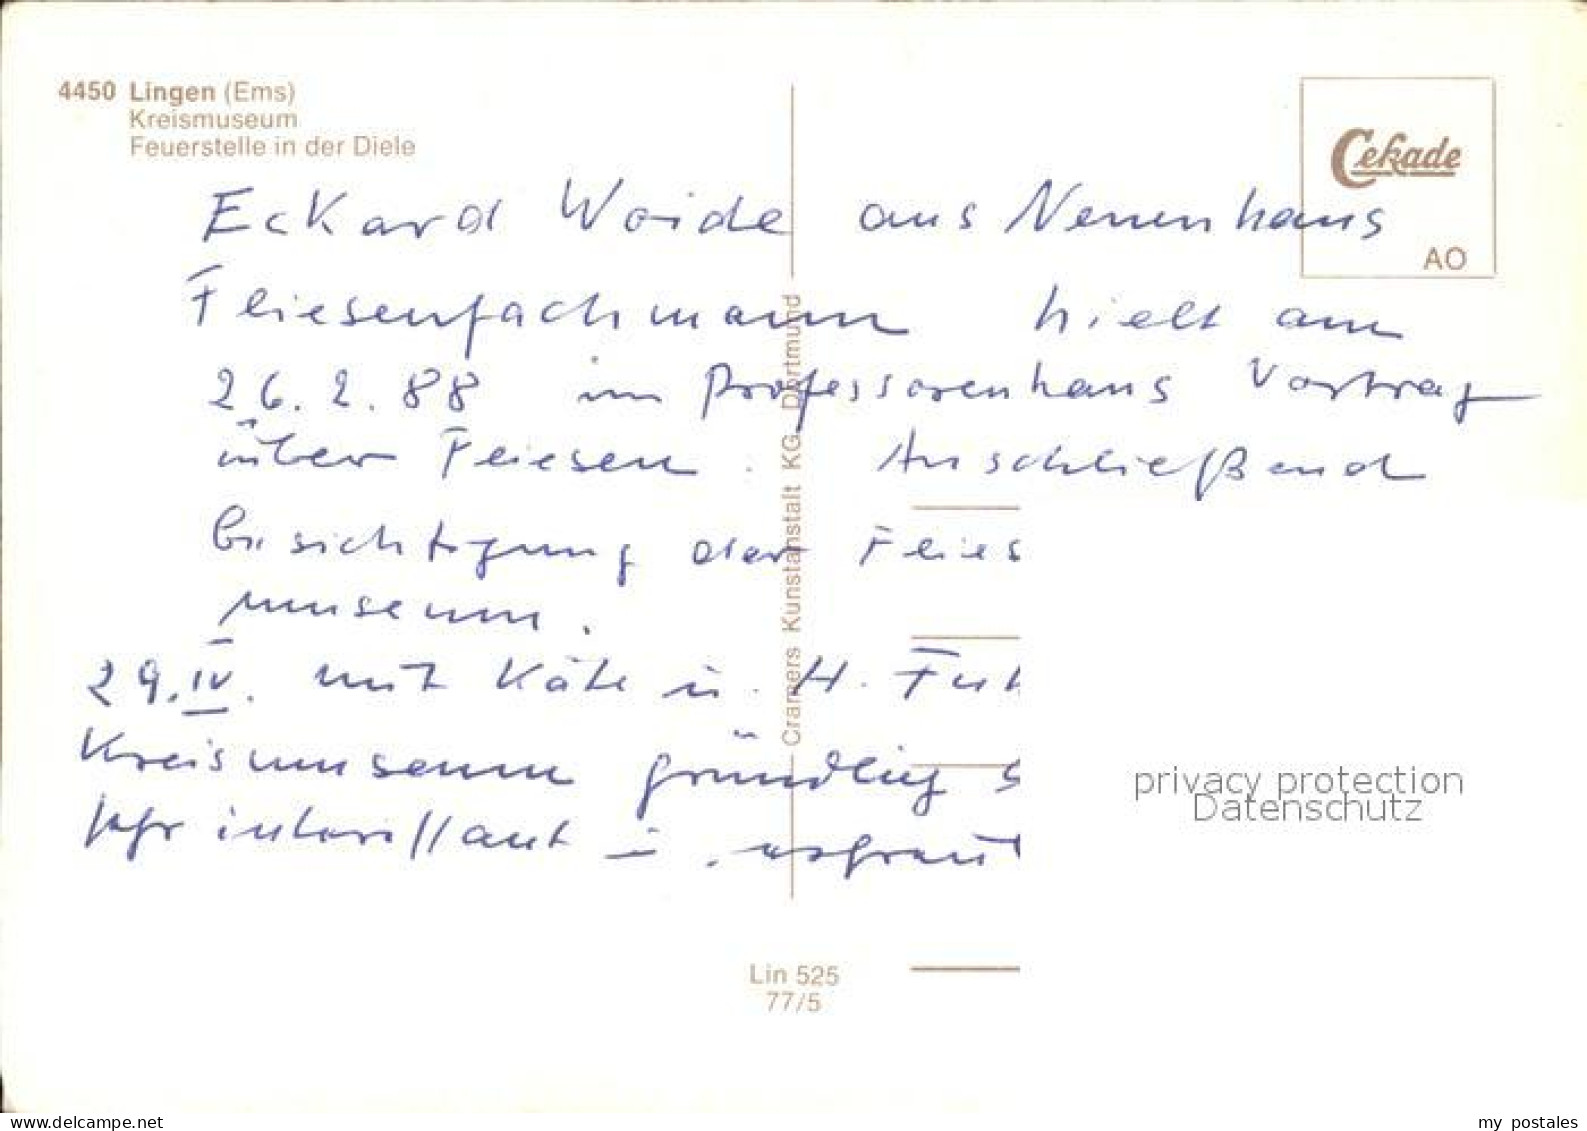 4450 Lingen (Ems)
Kreismuseum
Feuerstelle in der Diele
Cekade
AO
Eckard Woide aus Neuenhaus
Fliesenfachmann hielt am
26.2.88 im Professorenhaus Vortrag
über Fliesen. Anschließend
Besichtigung der Flies
museum.
29.IV. mit Käte u. H. Fuh
Kreismuseum gründlich s
sehr interessant u.
Cramers Kunstanstalt KG Dortmund
Lin 525
77/5
privacy protection
Datenschutz
www.delcampe.net
my postales